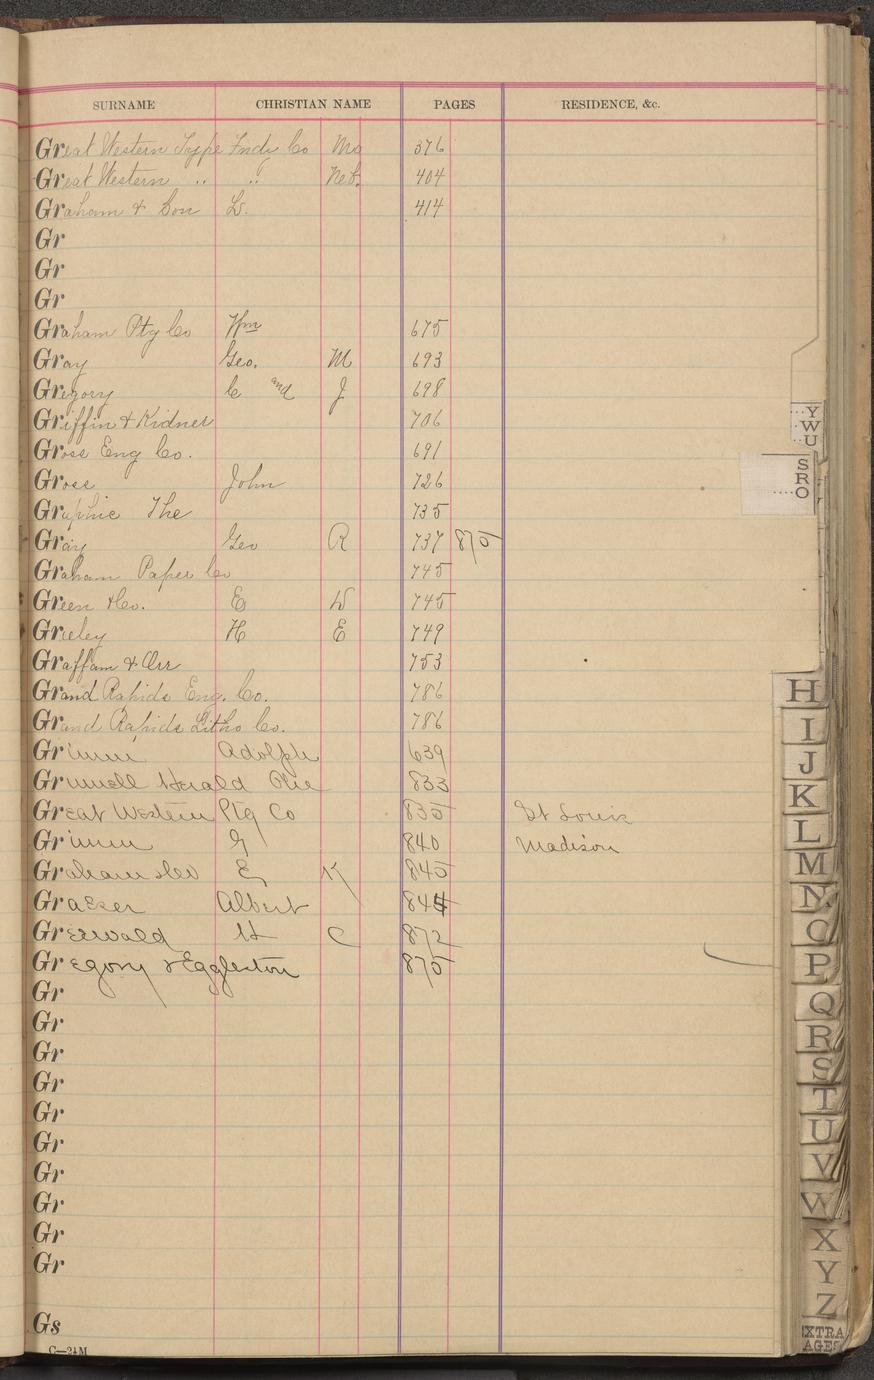 SURNAME CHRISTIAN NAME PAGES RESIDENCE, &c.
Great Western Type Fndy Co Mo 376
Great Western " " Neb. 404
Graham & Son L. 414
Gr
Gr
Gr
Graham Ptg Co Wm 675
Gray Geo. M 693
Gregory C and J 698
Griffin & Kidner 706
Gross Eng Co. 691
Gross John 726
Graphic The 735
Gray Geo R 737 875
Graham Paper Co 745
Green & Co. E W 745
Greeley H E 749
Graffam & Orr 753
Grand Rapids Eng. Co. 786
Grand Rapids Litho Co. 786
Grimm Adolph 639
Grinnell Herald The 833
Great Western Ptg Co 835 St Louis
Grimm G 840 Madison
Graham & Co E K 845
Graeser Albert 844
Greiwald H C 872
Gregory & Eggleston 875
Gr
Gr
Gr
Gr
Gr
Gr
Gr
Gr
Gr
Gr
Gs
C—2½M
Y
W
U
S
R
O
H
I
J
K
L
M
N
O
P
Q
R
S
T
U
V
W
X
Y
Z
EXTRA
AGES